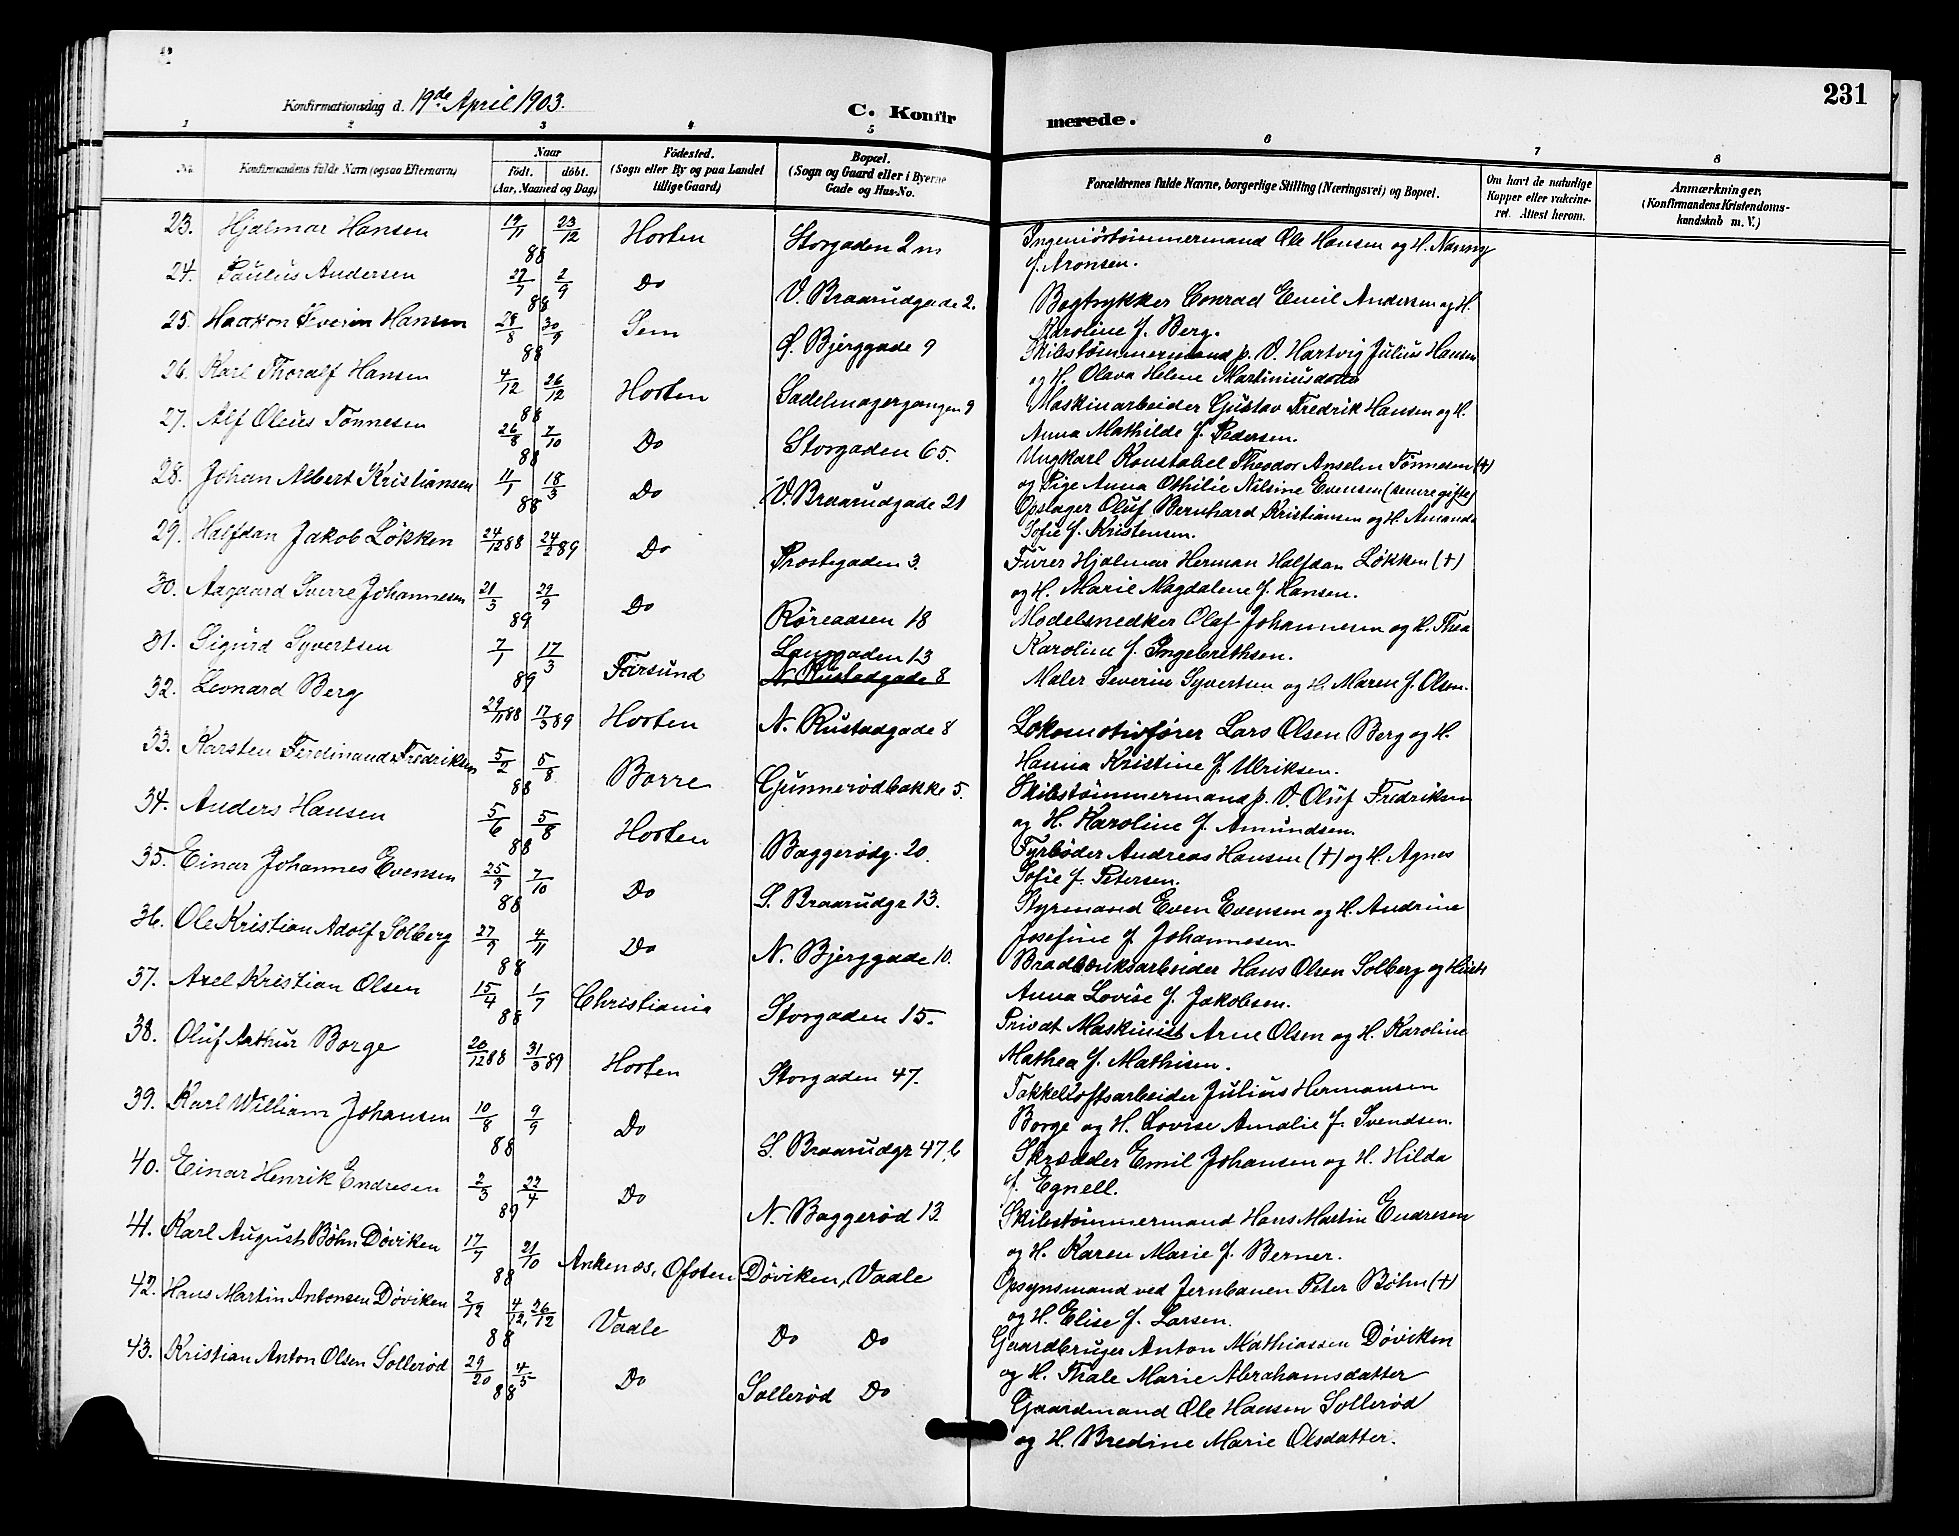 231
Konfirmationsdag d. 19de April 1903.
C. Konfirmerede.
1 2 3 4 5 6 7 8
No. Konfirmandens fulde Navn (ogsaa Efternavn) Naar Födt. döbt. (Aar, Maaned og Dag) Födested. (Sogn eller By og paa Landet tillige Gaard) Bopæl. (Sogn og Gaard eller i Byerne Gade og Hus-No. Forældrenes fulde Navne, borgerlige Stilling (Næringsvei) og Bopæl. Om havt de naturlige Kopper eller vakcineret. Attest herom. Anmærkninger. (Konfirmandens Kristendomskundskab m. V.)
23. Hjalmar Hansen 19/11 23/12 88 Horten Storgaden 2 m Ingeniörtømmermand Ole Hansen og H. Nanny
f. Aronsen.
24. Paulus Andersen 27/7 2/9 88 Do V. Braarudgade 2. Bogtrykker Conrad Emil Andersen og H.
Karoline f. Berg.
25. Haakon Severin Hansen 28/8 30/9 88 Sem Ø. Bjerggade 9 Skibstømmermand p. V. Hartvig Julius Hansen
og H. Olava Helene Martiniusdatter
26. Karl Thoralf Hansen 4/12 26/12 88 Horten Sadelmagergangen 9 Maskinarbeider Gustav Fredrik Hansen og H.
Anna Mathilde f. Pedersen.
27. Alf Oleus Tönnesen 26/8 7/10 88 Do Storgaden 65. Ungkarl Konstabel Theodor Anselm Tönnesen (+)
og Pige Anna Othilie Nilsine Evensen (senere gifte)
28. Johan Albert Kristiansen 11/1 18/3 88 Do V. Braarudgade 21 Opslager Oluf Bernhard Kristiansen og H. Amanda
Sofie f. Kristensen.
29. Halfdan Jakob Løkken 24/12 88 24/2 89 Do Prostegaden 3. Furer Hjalmar Herman Halfdan Løkken (+)
og H. Marie Magdalene f. Hansen.
30. Aagaard Sverre Johannesen 21/3 29/9 89 Do Røreaasen 18 Modelsnedker Olaf Johannesen og H. Thea
Karoline f. Ingebrethsen.
31. Sigurd Syvertsen 7/1 17/3 89 Farsund Langgaden 13
N. Rustadgade 8 Maler Severin Syvertsen og H. Maren f. Olsen.
32. Leonard Berg 29/11 88 17/3 89 Horten N. Rustadgade 8 Lokomotivfører Lars Olsen Berg og H.
Hanna Kristine f. Ulriksen.
33. Karsten Ferdinand Fredriksen 5/2 5/8 88 Borre Gunnerödbakke 5. Skibstømmermand p. V. Oluf Fredriksen
og H. Karoline f. Amundsen.
34. Anders Hansen 5/6 5/8 88 Horten Baggerødg. 20. Fyrbøder Andreas Hansen (+) og H. Agnes
Sofie f. Petersen.
35. Einar Johannes Evensen 25/7 7/10 88 Do S. Braarudgr 13. Styrmand Even Evensen og H. Andrine
Josefine f. Johannesen.
36. Ole Kristian Adolf Solberg 27/9 4/11 88 Do N. Bjerggade 10. Bradbænksarbeider Hans Olsen Solberg og Hustr
Anna Lovise f. Jakobsen.
37. Axel Kristian Olsen 15/4 1/7 88 Christiania Storgaden 15. Privat Maskinist Arne Olsen og H. Karoline
Mathea f. Mathisen.
38. Oluf Arthur Borge 20/12 88 31/3 89 Horten Storgaden 47. Takkelloftsarbeider Julius Hermansen
Borge og H. Lovise Amalie f. Svendsen.
39. Karl William Johansen 10/8 9/9 88 Do S. Braarudgr 47, b Skrædder Emil Johansen og H. Hilda
f. Egnell.
40. Einar Henrik Endresen 2/3 22/4 89 Do N. Baggerød 13. Skibstømmermand Hans Martin Endresen
og H. Karen Marie f. Berner.
41. Karl August Bøhn Døviken 17/7 21/10 88 Ankenæs, Ofoten Døviken, Vaale Opsynsmand ved Jernbanen Peter Bøhn (+)
og H. Elise f. Larsen.
42. Hans Martin Antonsen Døviken 2/12 4/12, 26/12 88 Vaale Do Do Gaardbruger Anton Mathiassen Döviken
og H. Thale Marie Abrahamsdatter
43. Kristian Anton Olsen Sollerød 29/20 4/5 88 Do Sollerød Do Gaardmand Ole Hansen Sollerød
og H. Bredine Marie Olsdatter.